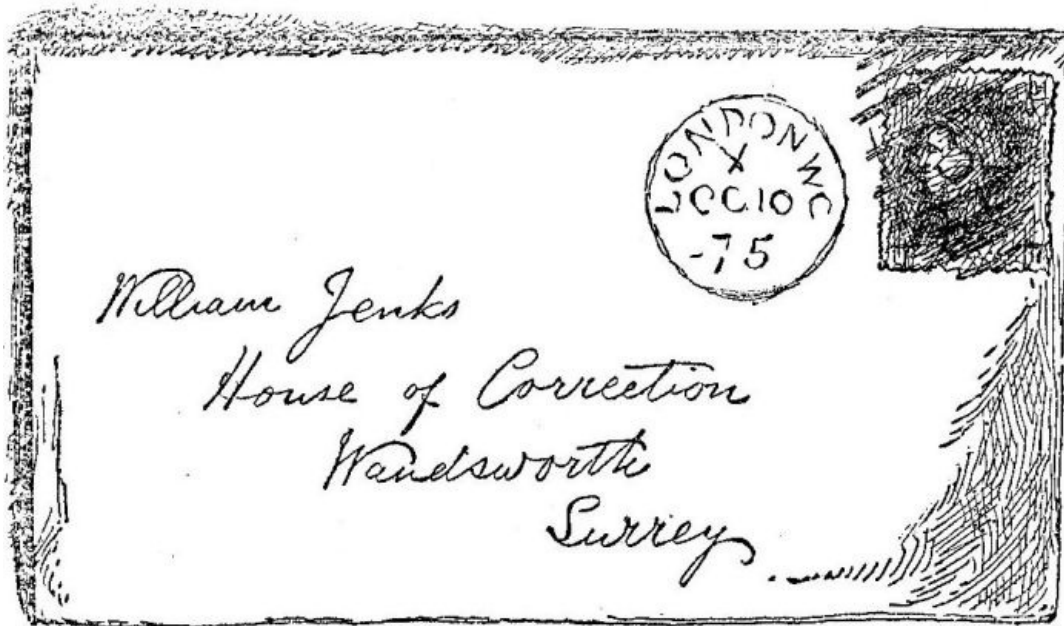 LONDON W C
X
OC 10
-75
William Jenks
House of Correction
Wandsworth
Surrey